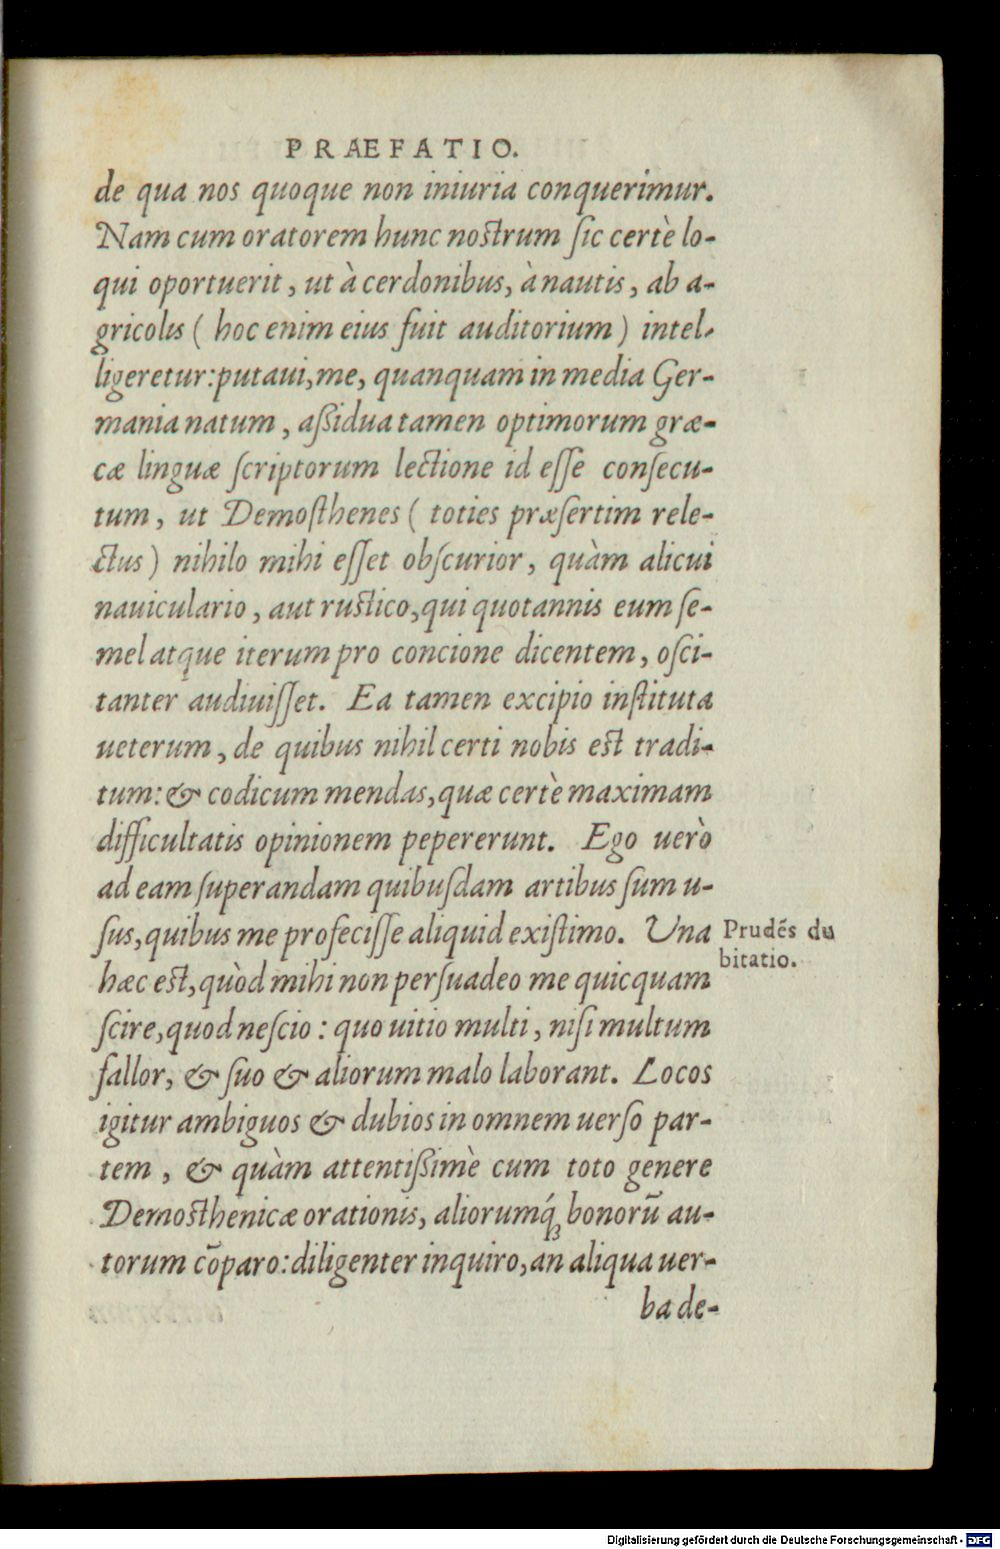 PRÆFATIO.
de qua nos quoque non iniuria conquerimur.
Nam cum oratorem hunc nostrum sic certè lo-
qui oportuerit, ut à cerdonibus, à nautis, ab a-
gricolis ( hoc enim eius fuit auditorium ) intel-
ligeretur: putaui, me, quanquam in media Ger-
mania natum, aßidua tamen optimorum græ-
cæ linguæ scriptorum lectione id esse consecu-
tum, ut Demosthenes ( toties præsertim rele-
ctus ) nihilo mihi esset obscurior, quàm alicui
nauiculario, aut rustico, qui quotannis eum se-
mel atque iterum pro concione dicentem, osci-
tanter audiuisset. Ea tamen excipio instituta
ueterum, de quibus nihil certi nobis est tradi-
tum: & codicum mendas, quæ certè maximam
difficultatis opinionem pepererunt. Ego uerò
ad eam superandam quibusdam artibus sum u-
sus, quibus me profecisse aliquid existimo. Una
Prudẽs du
bitatio.
hæc est, quòd mihi non persuadeo me quicquam
scire, quod nescio: quo uitio multi, nisi multum
fallor, & suo & aliorum malo laborant. Locos
igitur ambiguos & dubios in omnem uerso par-
tem, & quàm attentißimè cum toto genere
Demosthenicæ orationis, aliorumq́; bonorũ au-
torum cõparo: diligenter inquiro, an aliqua uer-
ba de-
Digitalisierung gefördert durch die Deutsche Forschungsgemeinschaft - DFG